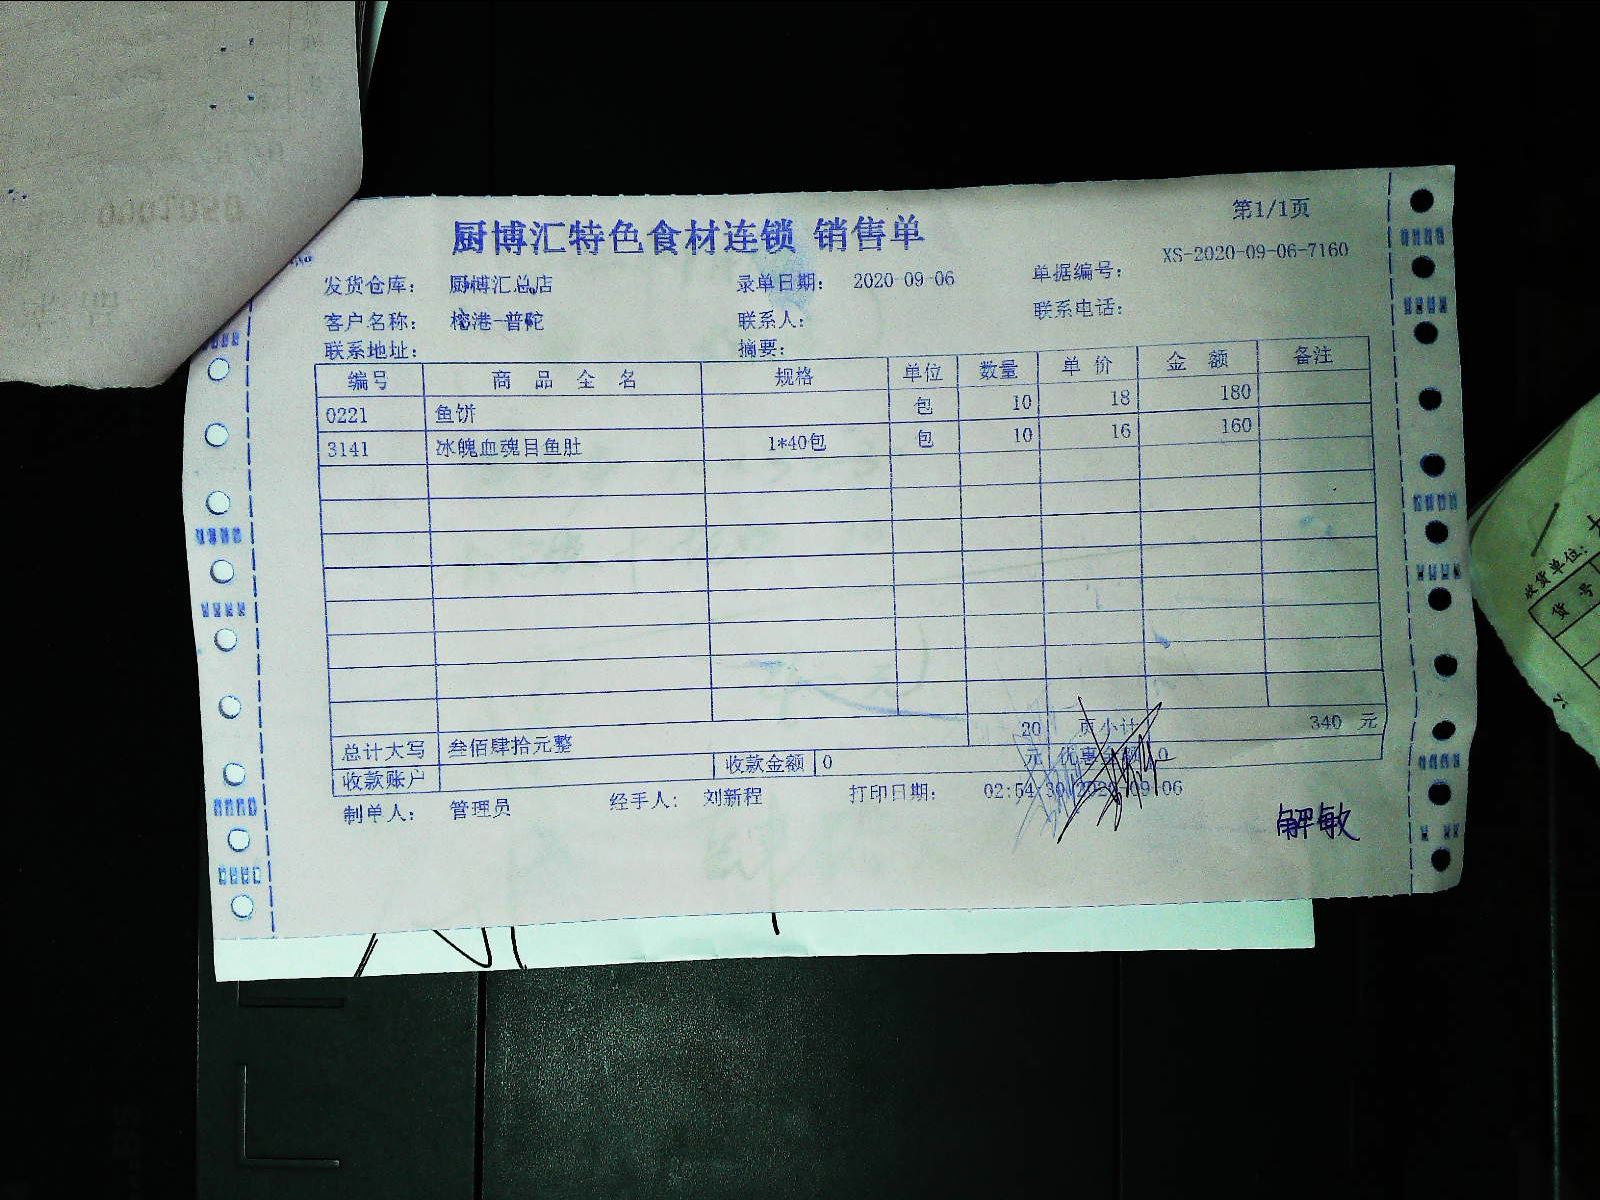 第1/1页
厨博汇特色食材连锁 销售单
发货仓库： 厨博汇总店 录单日期： 2020-09-06 单据编号： XS-2020-09-06-7160
客户名称： 榕港-普陀 联系人： 联系电话：
联系地址： 摘要：
编号 商 品 全 名 规格 单位 数量 单 价 金 额 备注
0221 鱼饼 包 10 18 180
3141 冰魄血魂目鱼肚 1*40包 包 10 16 160
20 页小计 340 元
总计大写 叁佰肆拾元整
收款账户 收款金额 0 元 优惠金额 0
制单人： 管理员 经手人： 刘新程 打印日期： 02:54:30 2020-09-06
解敏
收货单位：
货号